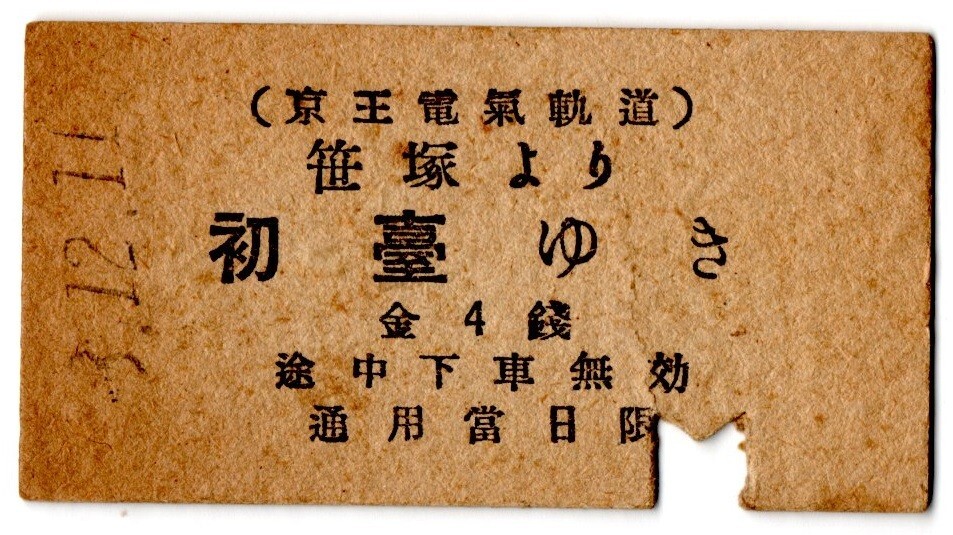 (京王電氣軌道)
笹塚より
初臺ゆき
金4錢
途中下車無効
通用當日限
3.12.11